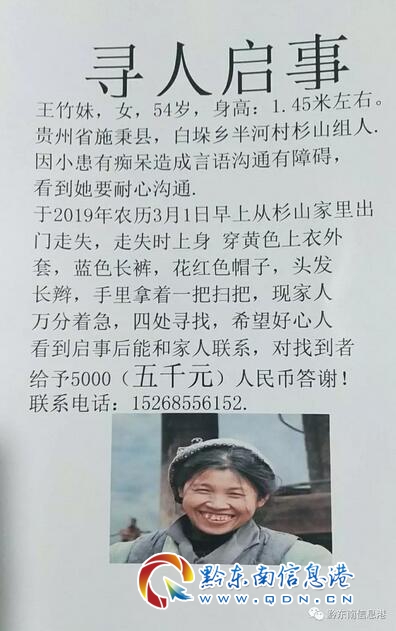 寻人启事
王竹妹，女，54岁，身高：1.45米左右。
贵州省施秉县，白垛乡半河村杉山组人.
因小患有痴呆造成言语沟通有障碍，
看到她要耐心沟通.
于2019年农历3月1日早上从杉山家里出
门走失，走失时上身 穿黄色上衣外
套，蓝色长裤，花红色帽子，头发
长辫，手里拿着一把扫把，现家人
万分着急，四处寻找，希望好心人
看到启事后能和家人联系，对找到者
给予5000（五千元）人民币答谢！
联系电话：15268556152.
黔东南信息港
WWW.QDN.CN
黔东南信息港